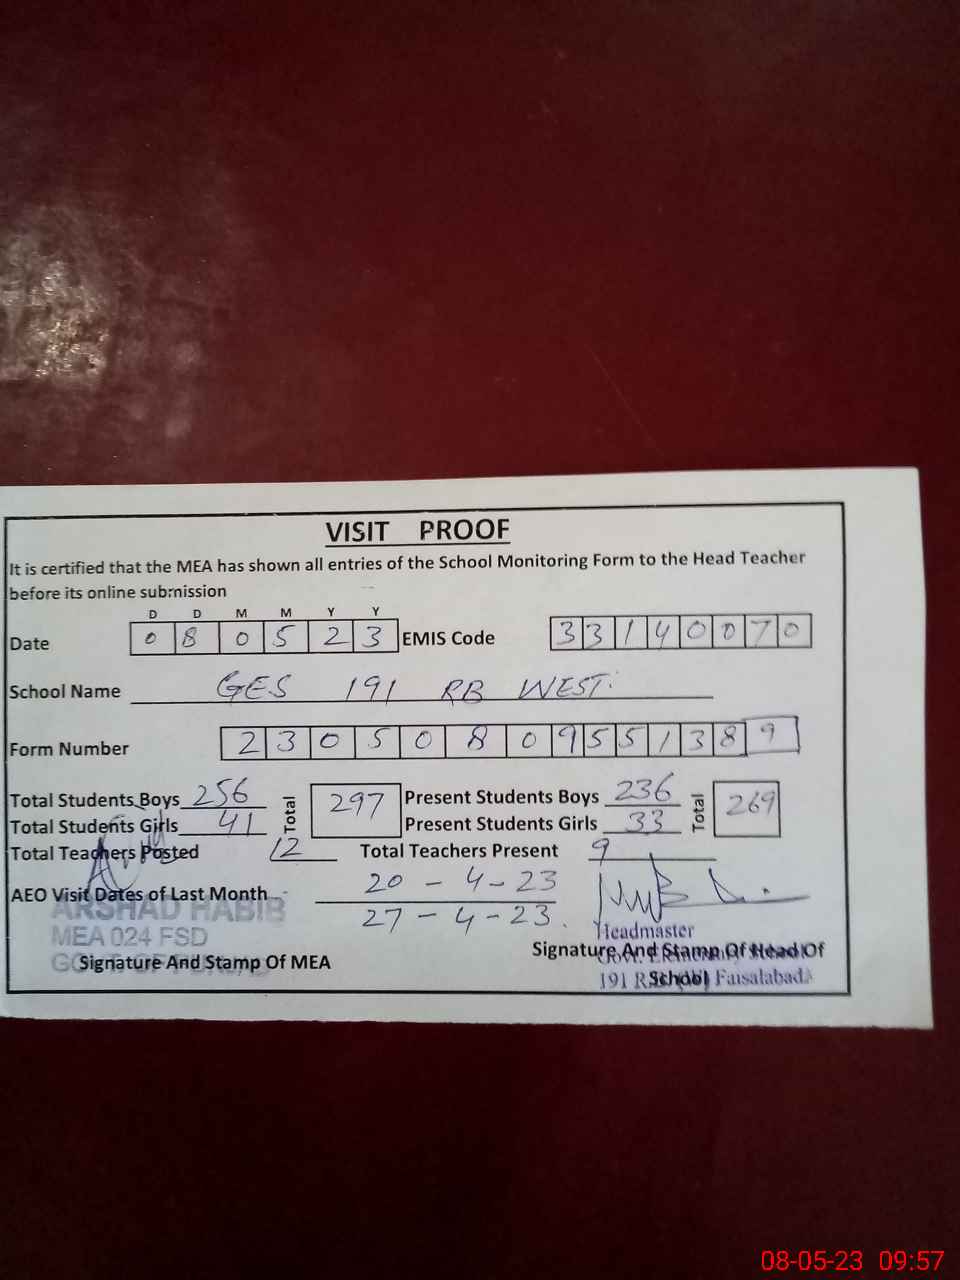 VISIT PROOF
It is certified that the MEA has shown all entries of the School Monitoring Form to the Head Teacher
before its online submission
D D M M Y Y
Date 0 8 0 5 2 3 EMIS Code 3 3 1 4 0 0 7 0
School Name GES 191 RB WEST.
Form Number 2 3 0 5 0 8 0 9 5 5 1 3 8 9
Total Students Boys 256 Total 297 Present Students Boys 236 Total 269
Total Students Girls 41 Present Students Girls 33
Total Teachers Posted 12 Total Teachers Present 9
AEO Visit Dates of Last Month 20 - 4 - 23
27 - 4 - 23.
ARSHAD HABIB
MEA 024 FSD
Signature And Stamp Of MEA
Headmaster
Signature And Stamp Of Head Of
School
191 Faisalabad
08-05-23 09:57